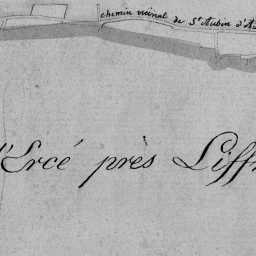 chemin vicinal de St Aubin d'A
d'Ercé près Liffr